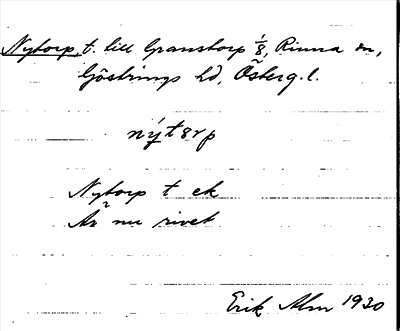 Nytorp, t. till Granstorp 1/8, Rinna sn,
Göstrings hd, Österg. l.
nýtǝrp
Nytorp t ek
Är nu rivet
Erik Alm 1930